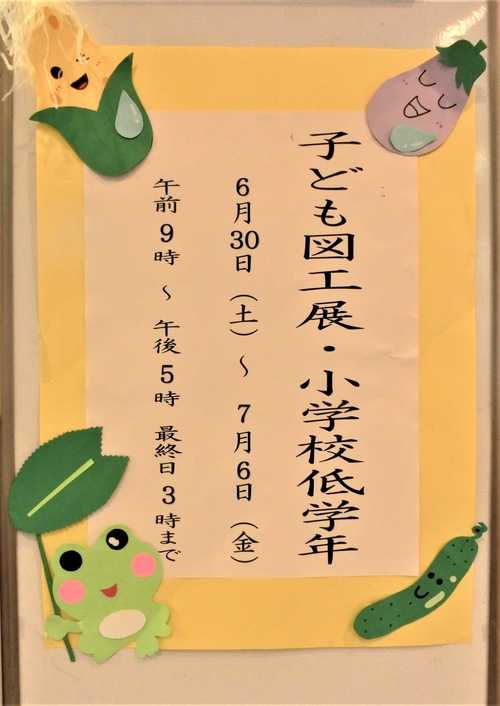 子ども図工展・小学校低学年
6月30日（土）～7月6日（金）
午前9時～午後5時 最終日3時まで